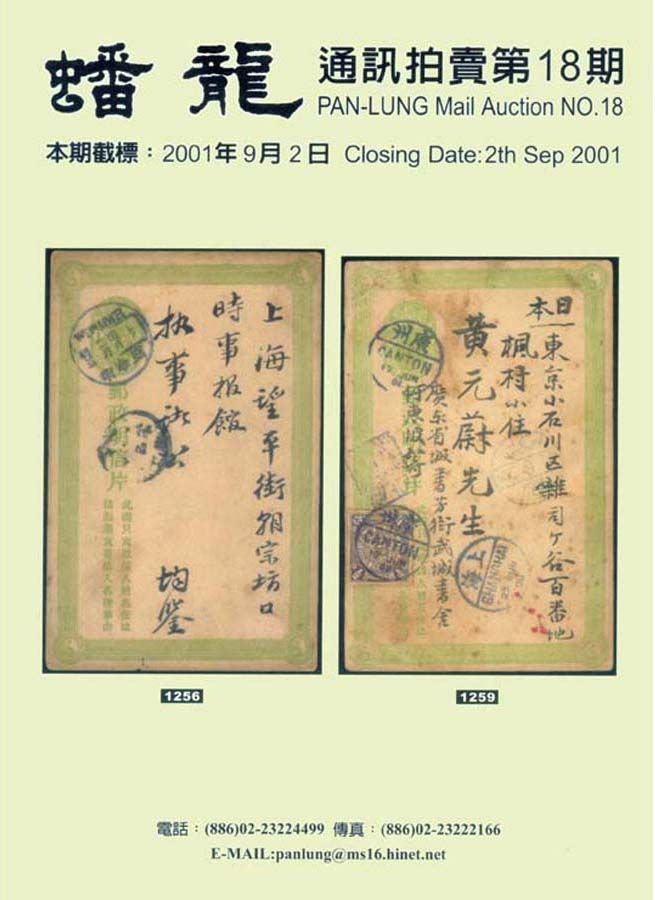 蟠龍
通訊拍賣第18期
PAN-LUNG Mail Auction NO.18
本期截標：2001年9月2日 Closing Date:2th Sep 2001
上海望平街朝宗坊口
時事报館
执事
均鉴
郵政明信片
日本東京小石川区雜司ケ谷百番地
楓村小住
黄元蔚先生
廣东省城書芳街武城書舍
廣州
CANTON
廣州
CANTON
1256
1259
電話：(886)02-23224499 傳真：(886)02-23222166
E-MAIL:panlung@ms16.hinet.net